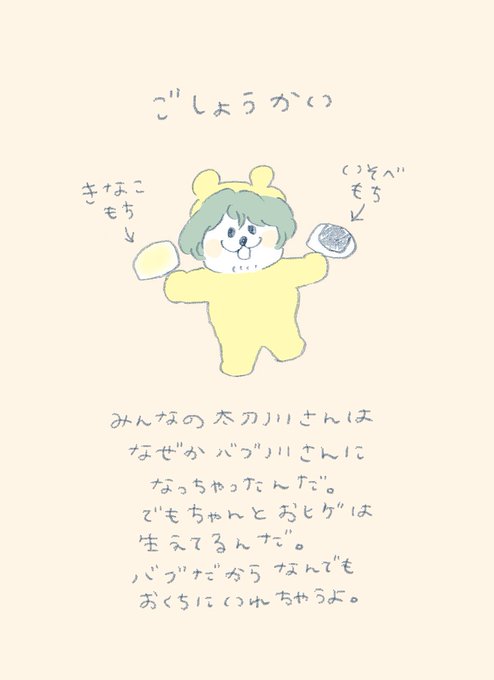 ごしょうかい
きなこ
もち
いそべ
もち
みんなの太刀川さんは
なぜかバブ川さんに
なっちゃったんだ。
でもちゃんとおヒゲは
生えてるんだ。
バブだからなんでも
おくちにいれちゃうよ。